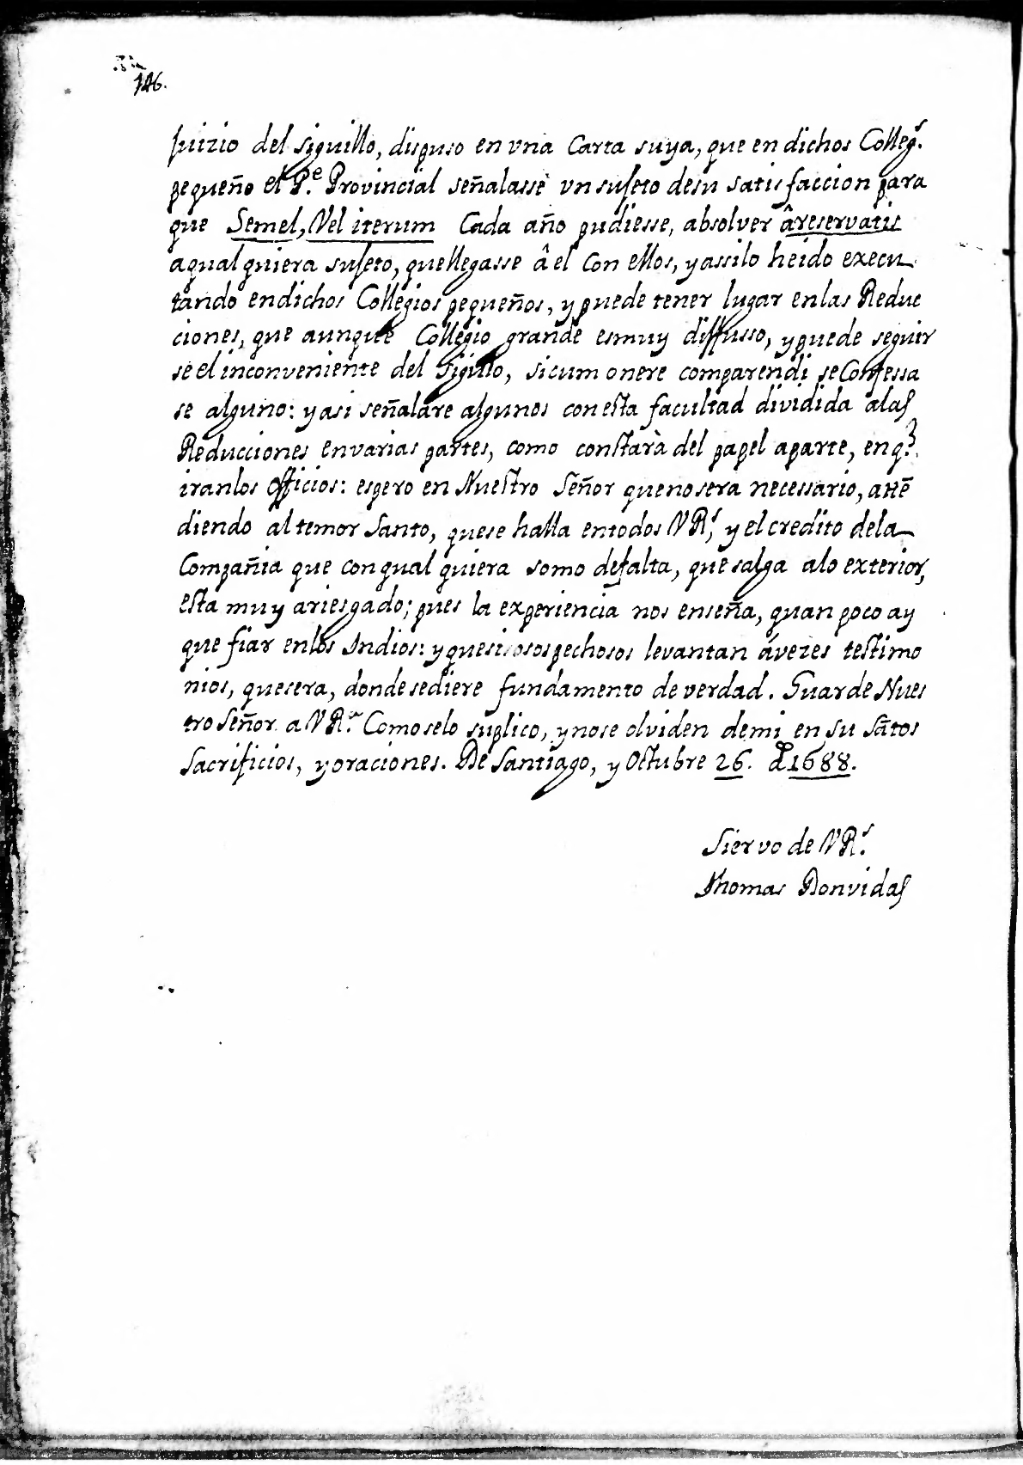 146.
juizio del siguillo, dispuso en vna Carta suya, que en dichos Colleg.s
pequeño el P.e Provincial señalasse vn sujeto desu satisfaccion para
que Semel, Vel iterum Cada año pudiesse, absolver âreservatis
aqualquiera sujeto, quellegasse â el Con ellos, yassilo heido execu
tando endichos Collegios pequeños, y puede tener lugar enlas Reduc
ciones, que aunque Collegio grande esmuy diffusso, ypuede seguir
se el inconveniente del sigillo, sicum onere comparendi seConfessa
se alguno: yasi señalare algunos conesta facultad dividida alas
Reducciones envarias partes, como constarà del papel aparte, enq.e
iranlos officios: espero en Nuestro Señor quenosera necessario, attē
diendo al temor Santo, quese halla entodos VR.s, y el credito dela
Compañia que conqualquiera somo defalta, que salga alo exterior,
esta muy ariesgado; pues la experiencia nos enseña, quan poco ay
que fiar enlos Indios: yquesi sospechosos levantan ávezes testimo
nios, quesera, donde sediere fundamento de verdad. Guarde Nues
tro Señor a VR.s Comoselo suplico, ynose olviden demi en su sãtos
Sacrificios, yoraciones. De Santiago, y Octubre 26. d 1688.
Siervo de VR.s
Thomas Donvidas